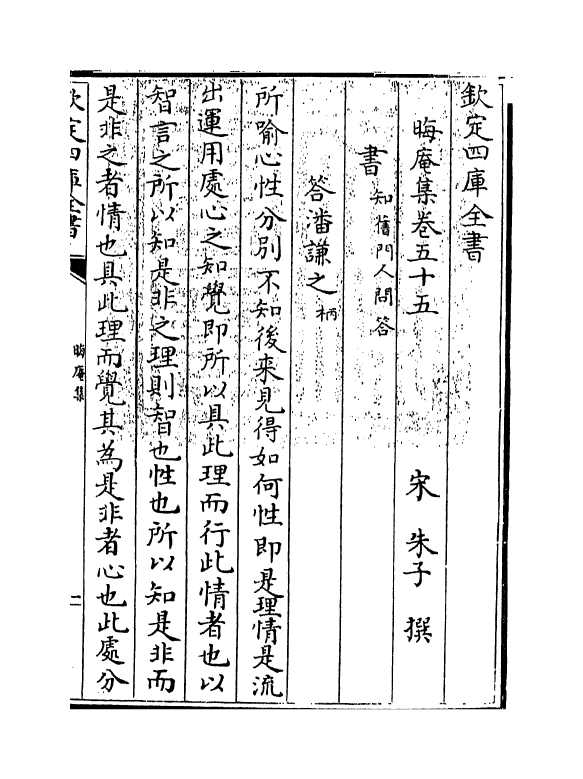 欽定四庫全書
晦庵集卷五十五　宋　朱子　撰
書知舊門人問答
答潘謙之柄
所喻心性分別不知後來見得如何性即是理情是流
出運用處心之知覺即所以具此理而行此情者也以
智言之所以知是非之理則智也性也所以知是非而
是非之者情也具此理而覺其為是非者心也此處分
欽定四庫全書
晦庵集